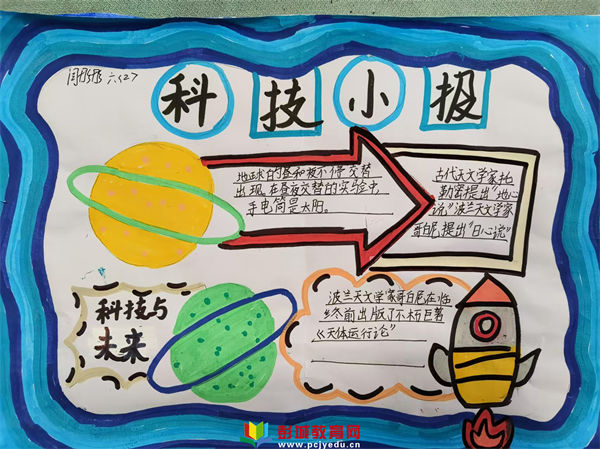 六(2)
科技小报
地球的昼和夜不停交替
出现,在昼夜交替的实验中,
手电筒是太阳。
古代天文学家托
勒密提出“地心
说”波兰天文学家
哥白尼提出“日心说”
科技与
未来
波兰天文学家哥白尼在临
终前出版了不朽巨著
《天体运行论”
彭城教育网
www.pcjyedu.cn